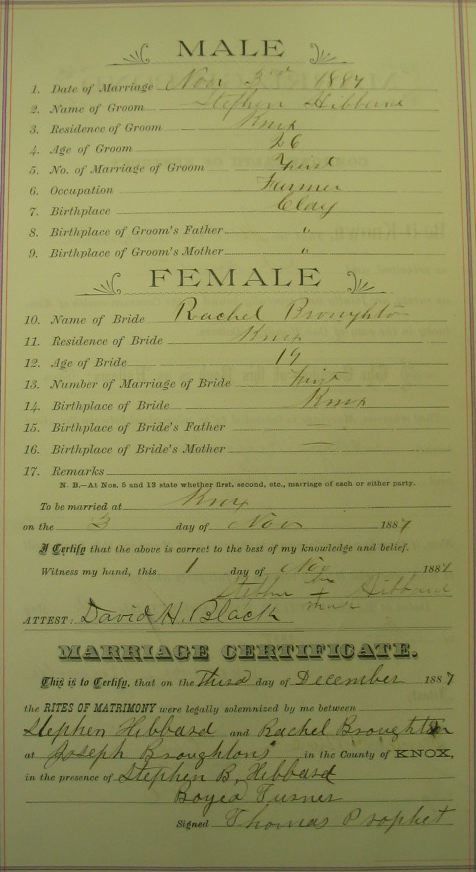 MALE
1. Date of Marriage Nov 3rd 1887
2. Name of Groom Stephen Hibbard
3. Residence of Groom Knox
4. Age of Groom 26
5. No. of Marriage of Groom First
6. Occupation Farmer
7. Birthplace Clay
8. Birthplace of Groom's Father "
9. Birthplace of Groom's Mother "
FEMALE
10. Name of Bride Rachel Broughton
11. Residence of Bride Knox
12. Age of Bride 19
13. Number of Marriage of Bride First
14. Birthplace of Bride Knox
15. Birthplace of Bride's Father —
16. Birthplace of Bride's Mother —
17. Remarks
N. B.—At Nos. 5 and 13 state whether first, second, etc., marriage of each or either party.
To be married at Knox
on the 3 day of Nov 1887
I Certify that the above is correct to the best of my knowledge and belief.
Witness my hand, this 1 day of Nov 1887
Stephen his + mark Hibbard
ATTEST: David H. Black
MARRIAGE CERTIFICATE.
This is to Certify, that on the third day of December 1887
the RITES OF MATRIMONY were legally solemnized by me between
Stephen Hibbard and Rachel Broughton
at Joseph Broughtons in the County of KNOX,
in the presence of Stephen B, Hibbard
Turner
Signed Thomas Prophet